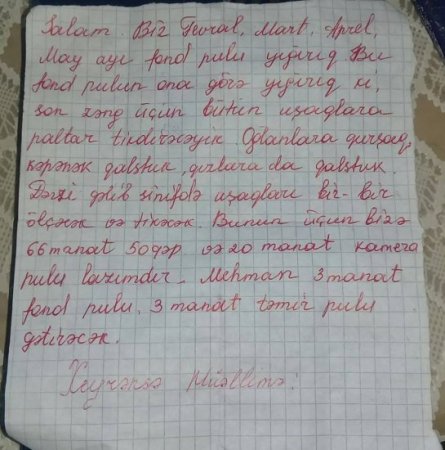 Salam. Biz Fevral, Mart, Aprel,
May ayı fond pulu yığırıq. Bu
fond pulun ona görə yığırıq ki,
son zəng üçün bütün uşaqlara
paltar tikdirəcəyik. Oğlanlara qurşaq,
kəpənək qalstuk, qızlara da qalstuk.
Dərzi gəlib sinifdə uşaqları bir-bir
ölçəcək və tikəcək. Bunun üçün bizə
66 manat 50 qəp və 20 manat kamera
pulu lazımdır. Mehman 3 manat
fond pulu. 3 manat təmir pulu
gətirəcək.
Xeyransə Müəllimə.